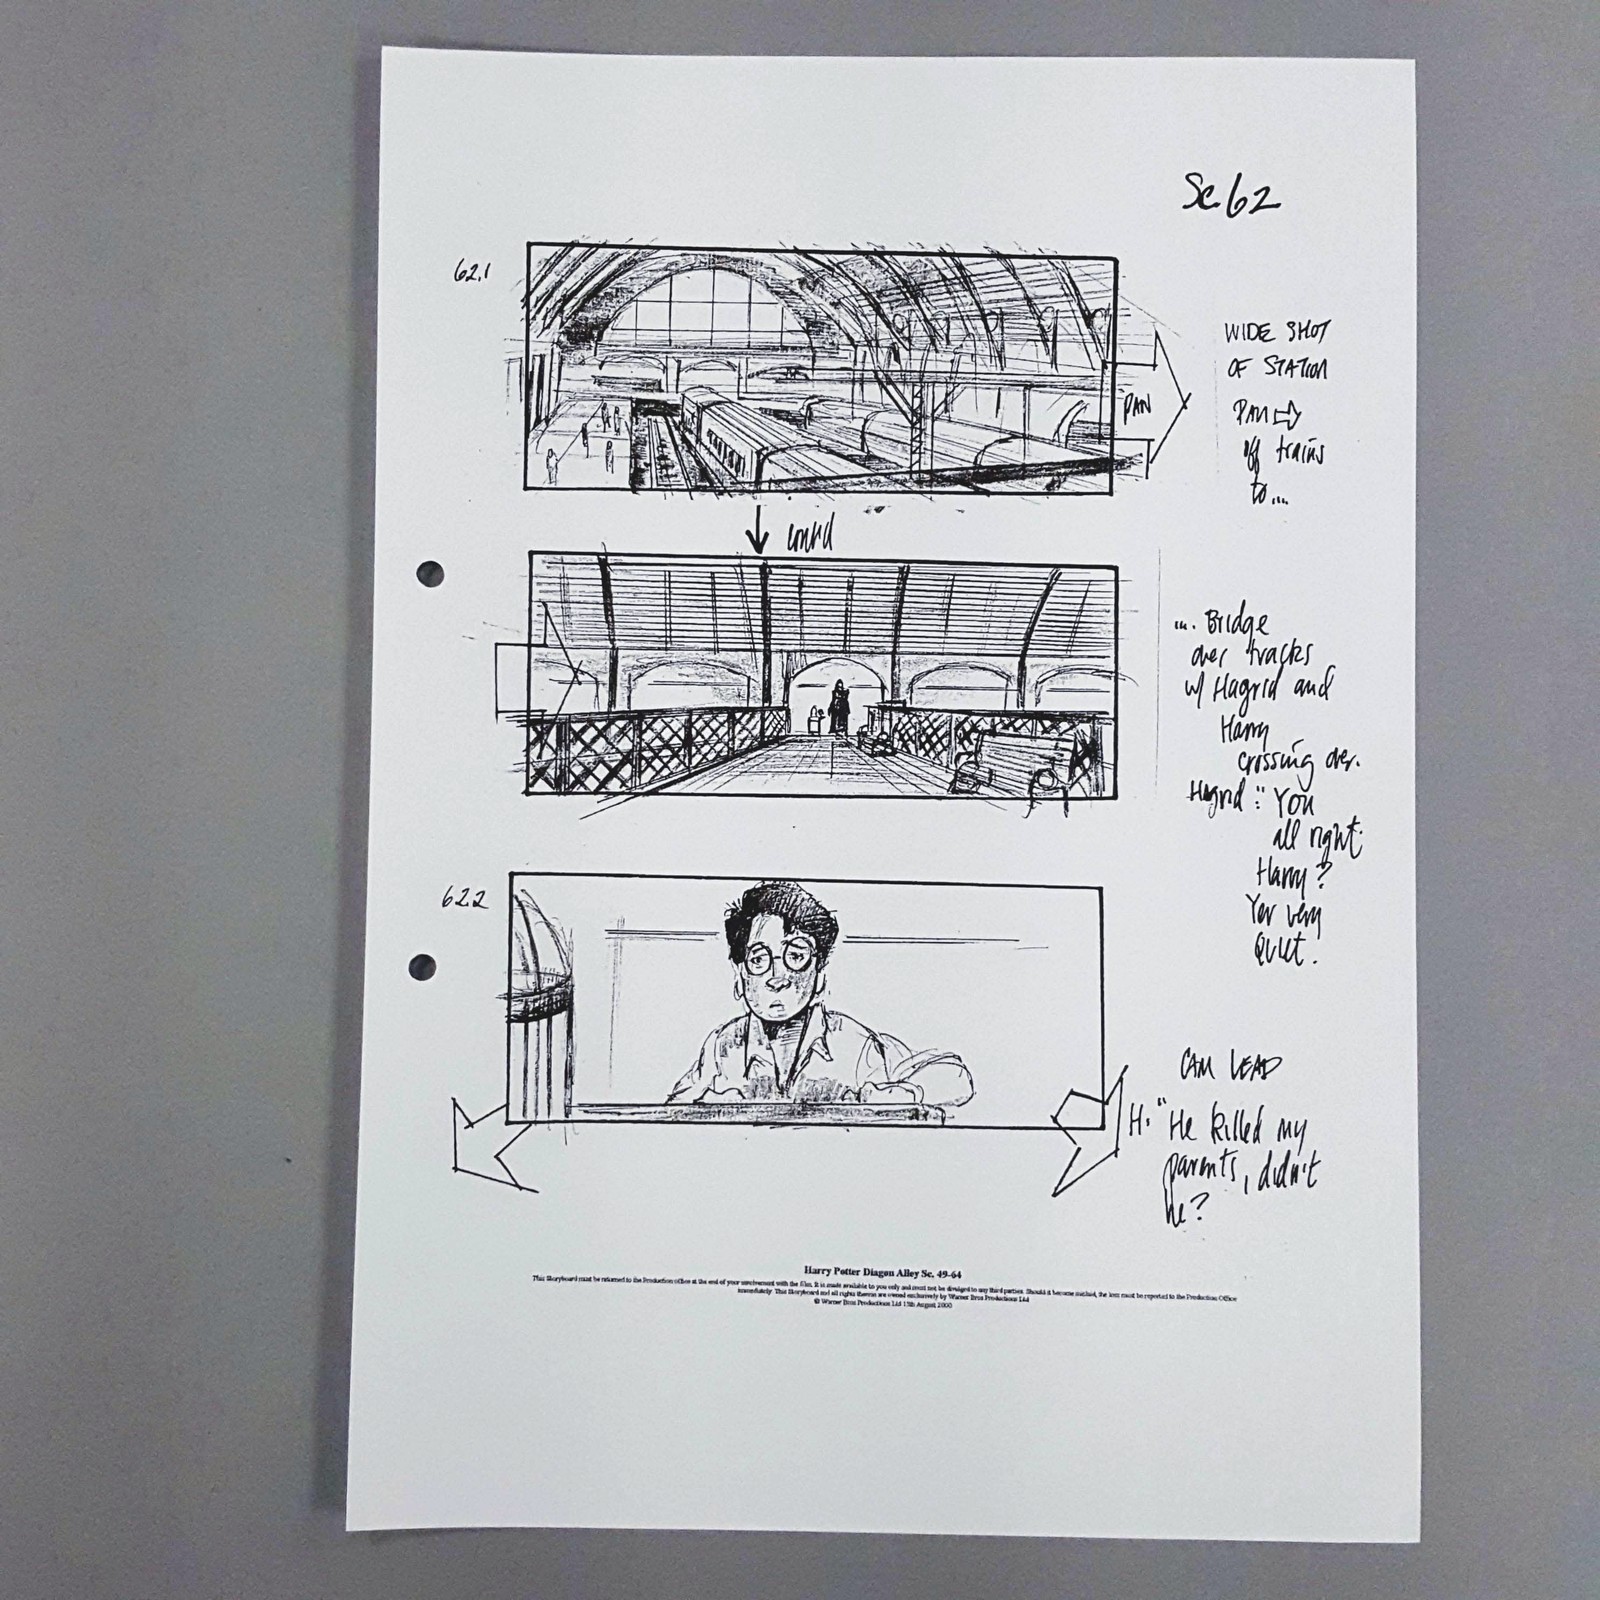 Sc. 62
62.1
WIDE SHOT
OF STATION
PAN
PAN
off trains
to...
cont'd
.... Bridge
over tracks
w/ Hagrid and
Harry
crossing over.
Hagrid: "You
all right
Harry?
Yer very
Quiet.
62.2
CAM LEAD
H: "He killed my
parents, didn't
he?
Harry Potter Diagon Alley Sc. 49-64
This Storyboard must be returned to the Production office at the end of your involvement with the film. It is made available to you only and must not be divulged to any third parties. Should it become mislaid, the loss must be reported to the Production Office
immediately. This Storyboard and all rights therein are owned exclusively by Warner Bros Productions Ltd
© Warner Bros Productions Ltd 15th August 2000